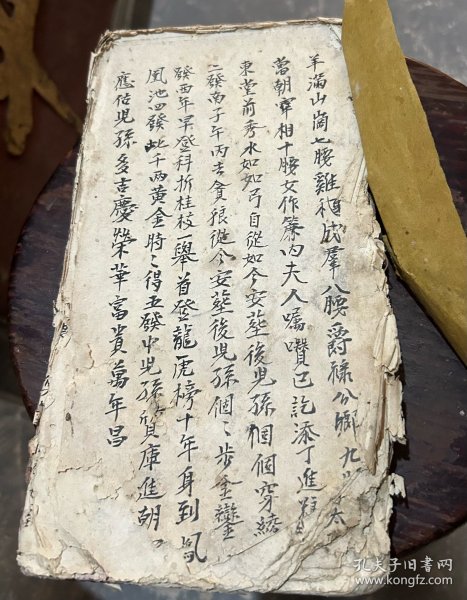 羊滿山崗七腰雞積成羣八腰爵祿公卿九
當朝宰相十腰女作簾内夫人嘱讚已訖添丁進
東堂前秀水如如弓自從如今安塟後児孫個個穿繞
二發南子午丙去貪狼從今安塟後児孫個〻步金鑾
發酉年早登科折桂枝一舉首登龍虎榜十年身到鳳
凰池四發 千两黄金時〻得五發 児孫質庫進
應估児孫多吉慶榮華富貴萬年昌
孔夫子旧書网
www.kongfz.com